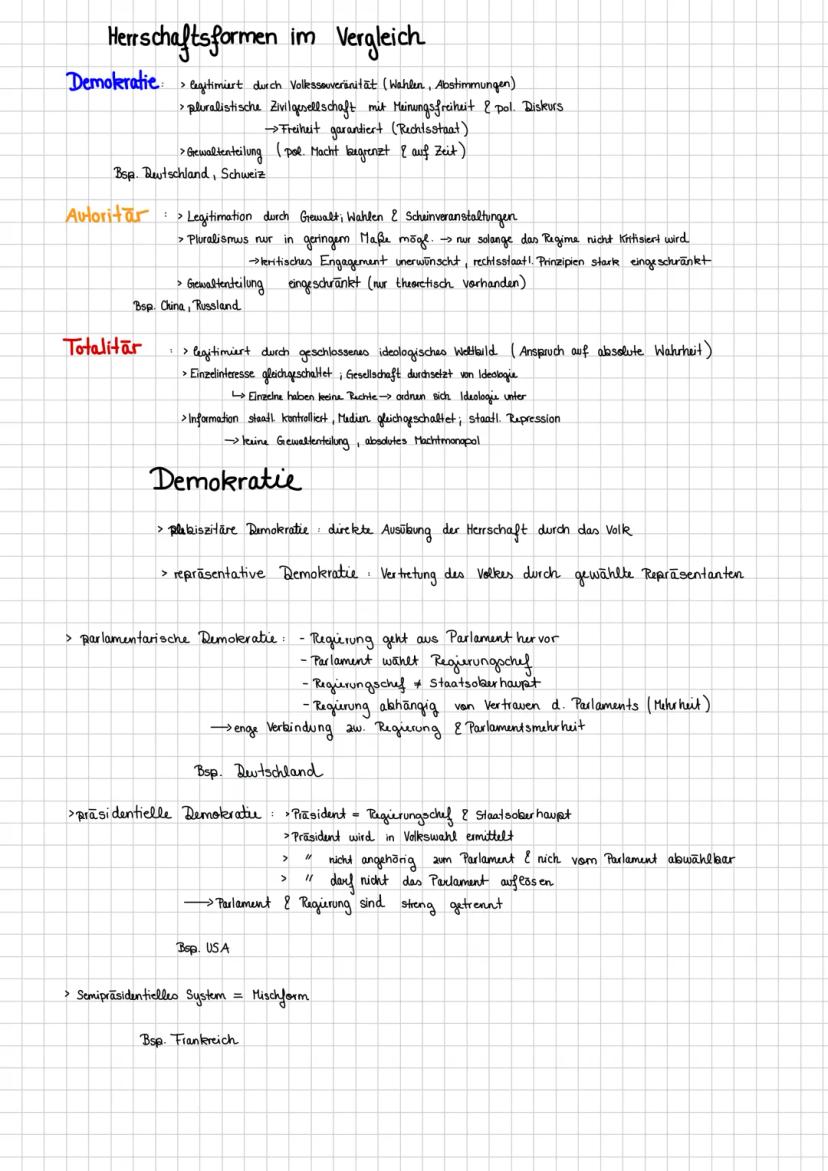 Herrschaftsformen im Vergleich
Demokratie: > legitimiert durch Volkssouveränität (Wahlen, Abstimmungen)
> pluralistische Zivilgesellschaft mit Meinungsfreiheit & pol. Diskurs
→ Freiheit garantiert (Rechtsstaat)
> Gewaltenteilung (pol. Macht begrenzt & auf Zeit)
Bsp. Deutschland, Schweiz
Autoritär: > Legitimation durch Gewalt; Wahlen & Scheinveranstaltungen
> Pluralismus nur in geringem Maße mögl. → nur solange das Regime nicht kritisiert wird
→ kritisches Engagement unerwünscht, rechtsstaatl. Prinzipien stark eingeschränkt
> Gewaltenteilung eingeschränkt (nur theoretisch vorhanden)
Bsp. China, Russland
Totalitär: > legitimiert durch geschlossenes ideologisches Weltbild (Anspruch auf absolute Wahrheit)
> Einzelinteresse gleichgeschaltet; Gesellschaft durchsetzt von Ideologie
↳ Einzelne haben keine Rechte → ordnen sich Ideologie unter
> Information staatl. kontrolliert, Medien gleichgeschaltet; staatl. Repression
→ keine Gewaltenteilung, absolutes Machtmonopol
Demokratie
> plebiszitäre Demokratie: direkte Ausübung der Herrschaft durch das Volk
> repräsentative Demokratie: Vertretung des Volkes durch gewählte Repräsentanten
> parlamentarische Demokratie: - Regierung geht aus Parlament hervor
- Parlament wählt Regierungschef
- Regierungschef ≠ Staatsoberhaupt
- Regierung abhängig von Vertrauen d. Parlaments (Mehrheit)
→ enge Verbindung zw. Regierung & Parlamentsmehrheit
Bsp. Deutschland
> präsidentielle Demokratie: > Präsident = Regierungschef & Staatsoberhaupt
> Präsident wird in Volkswahl ermittelt
> " nicht angehörig zum Parlament & nich vom Parlament abwählbar
> " darf nicht das Parlament auflösen
→ Parlament & Regierung sind streng getrennt
Bsp. USA
> Semipräsidentielles System = Mischform
Bsp. Frankreich